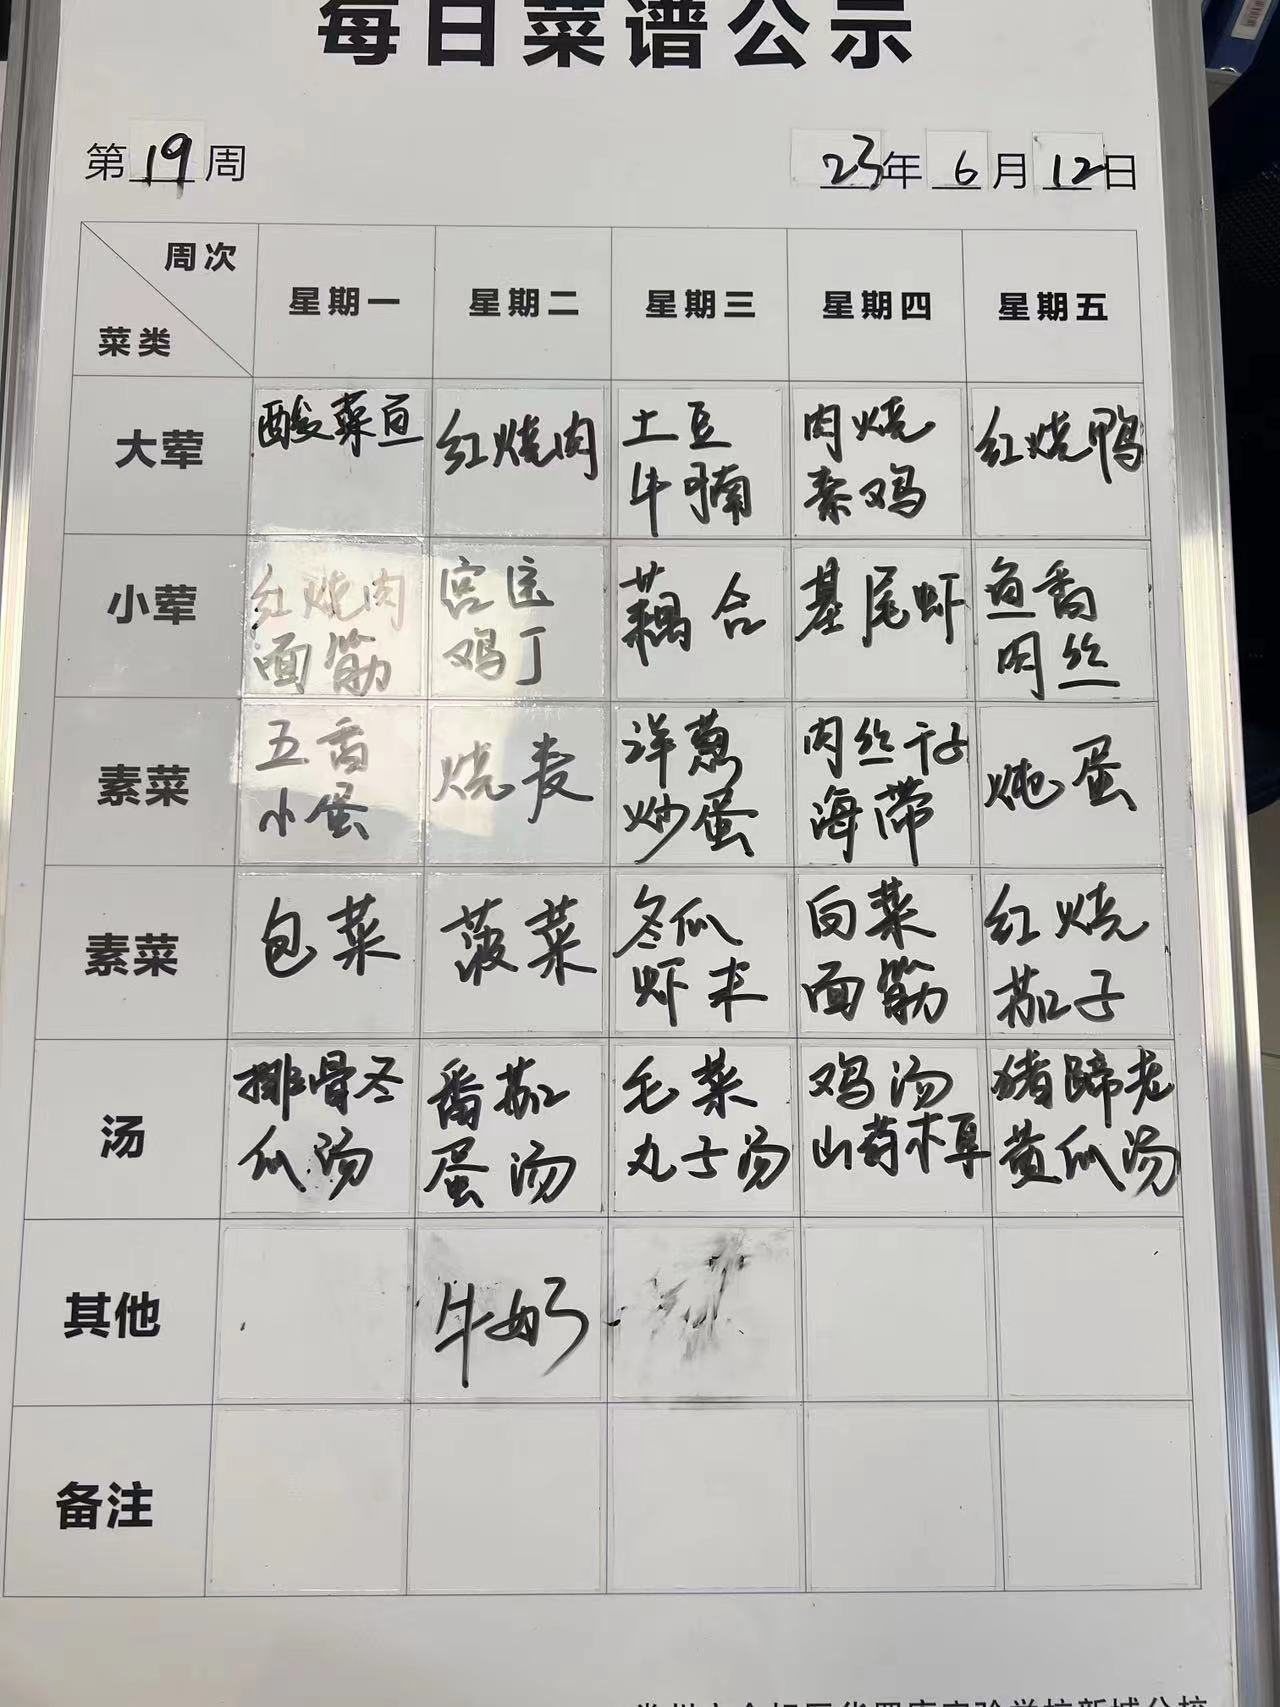 每日菜谱公示
第19周 23年6月12日
周次 星期一 星期二 星期三 星期四 星期五
菜类
大荤 酸菜鱼 红烧肉 土豆 肉烧 红烧鸭
牛腩 素鸡
小荤 红烧肉 宫保 藕合 基尾虾 鱼香
面筋 鸡丁 肉丝
素菜 五香 烧麦 洋葱 肉丝干子 炖蛋
小蛋 炒蛋 海带
素菜 包菜 菠菜 冬瓜 白菜 红烧
虾米 面筋 茄子
汤 排骨冬 番茄 毛菜 鸡汤 猪蹄老
瓜汤 蛋汤 丸子汤 山药木耳 黄瓜汤
其他 牛奶
备注